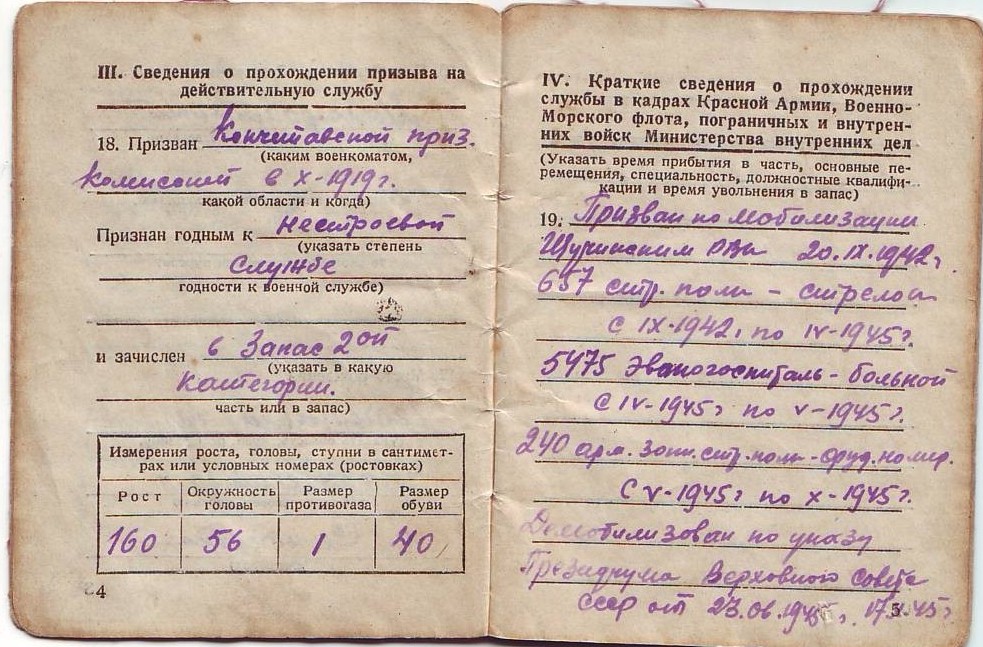 III. Сведения о прохождении призыва на
действительную службу
18. Призван Кокчетавской приз.
(каким военкоматом,
комиссией в X-1919 г.
какой области и когда)
Признан годным к нестроевой
(указать степень
службе
годности к военной службе)
и зачислен в Запас 2ой
(указать в какую
категории.
часть или в запас)
Измерения роста, головы, ступни в сантимет-
рах или условных номерах (ростовках)
Рост
Окружность
головы
Размер
противогаза
Размер
обуви
160 56 1 40
4
IV. Краткие сведения о прохождении
службы в кадрах Красной Армии, Военно-
Морского флота, пограничных и внутрен-
них войск Министерства внутренних дел
(Указать время прибытия в часть, основные пе-
ремещения, специальность, должностные квалифи-
кации и время увольнения в запас)
19. Призван по мобилизации
Щучинским РВК 20.IX.1942 г.
657 стр. полк - стрелок
С IX-1942 г. по IV-1945 г.
5475 Эвакогоспиталь - больной
С IV-1945 г. по V-1945 г.
240 арм. зап. стр. полк - оруд. номер.
С V-1945 г. по X-1945 г.
Демобилизован по указу
Президиума Верховного Совета
СССР от 23.06.1945 г.
5